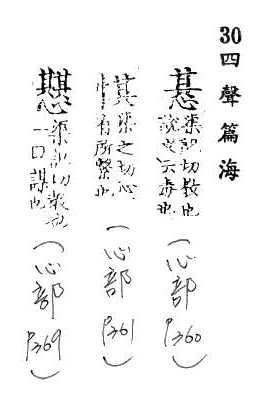 30四聲篇海
惎 渠記切教也
說文云毒也
(心部 P.360)
渠之切心
有所繫也
(心部 P.361)
渠記切教也
一口謀也
(心部 P.369)